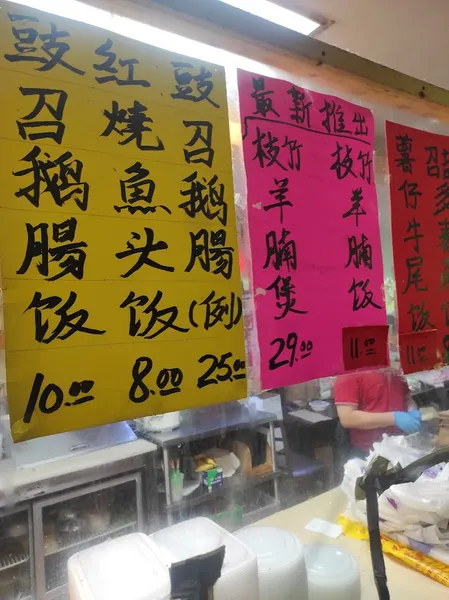 豉召鹅腸饭 10.00
红燒魚头饭 8.00
豉召鹅腸(例) 25.00
最新推出
枝竹羊腩煲 29.00
枝竹羊腩饭 11.00
薯仔牛尾饭 11